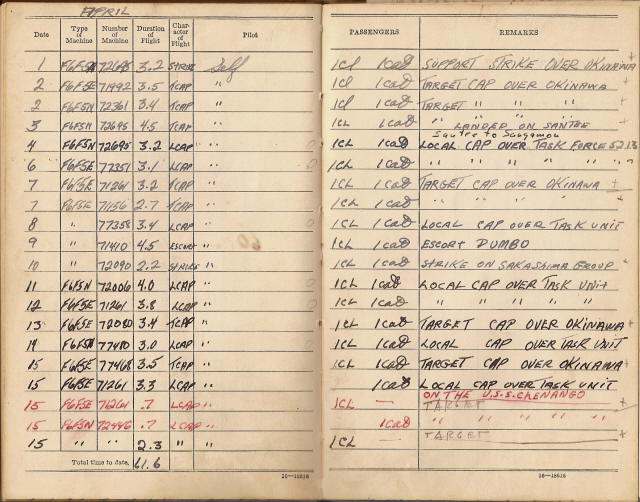 APRIL
Date Type of Machine Number of Machine Duration of Flight Character of Flight Pilot PASSENGERS REMARKS
1 F6F5N 72695 3.2 STRIKE Self 1CL 1cad SUPPORT STRIKE OVER OKINAWA +
2 F6F5E 71992 3.5 TCAP " 1CL 1cad TARGET CAP OVER OKINAWA +
2 F6F5N 72361 3.4 TCAP " 1CL 1cad TARGET " " " +
3 F6F5N 72695 4.5 TCAP " 1CL 1cad " " LANDED ON SANTEE
Santee to
4 F6F5N 72695 3.2 LCAP " 1CL 1cad LOCAL CAP OVER TASK FORCE 52.1.3
6 F6F5E 77351 3.1 LCAP " 1CL 1cad " " " " " "
7 F6F5E 71261 3.2 TCAP " 1CL 1cad TARGET CAP OVER OKINAWA +
7 F6F5E 71156 2.7 TCAP " 1CL 1cad " " " " +
8 " 77358 3.4 LCAP " 1CL 1cad LOCAL CAP OVER TASK UNIT
9 " 71410 4.5 ESCORT " 1CL 1cad ESCORT DUMBO
10 " 72090 2.2 STRIKE " 1CL 1cad STRIKE ON SAKASHIMA GROUP +
11 F6F5N 72006 4.0 LCAP " 1CL 1cad LOCAL CAP OVER TASK UNIT
12 F6F5E 71261 3.8 LCAP " 1CL 1cad " " " " "
13 F6F5E 72080 3.4 TCAP " 1CL 1cad TARGET CAP OVER OKINAWA +
14 F6F5N 77470 3.0 LCAP " 1CL 1cad LOCAL CAP OVER TASK UNIT
15 F6F5E 77468 3.5 TCAP " 1CL 1cad TARGET CAP OVER OKINAWA +
15 F6F5E 71261 3.3 LCAP " 1cad LOCAL CAP OVER TASK UNIT
ON THE U.S.S. CHENANGO
15 F6F5E 71261 .7 LCAP " 1CL — TARGET
15 F6F5N 72445 .7 LCAP " 1cad " " " " "
15 " " 2.3 " " 1CL — TARGET
Total time to date, 61.6